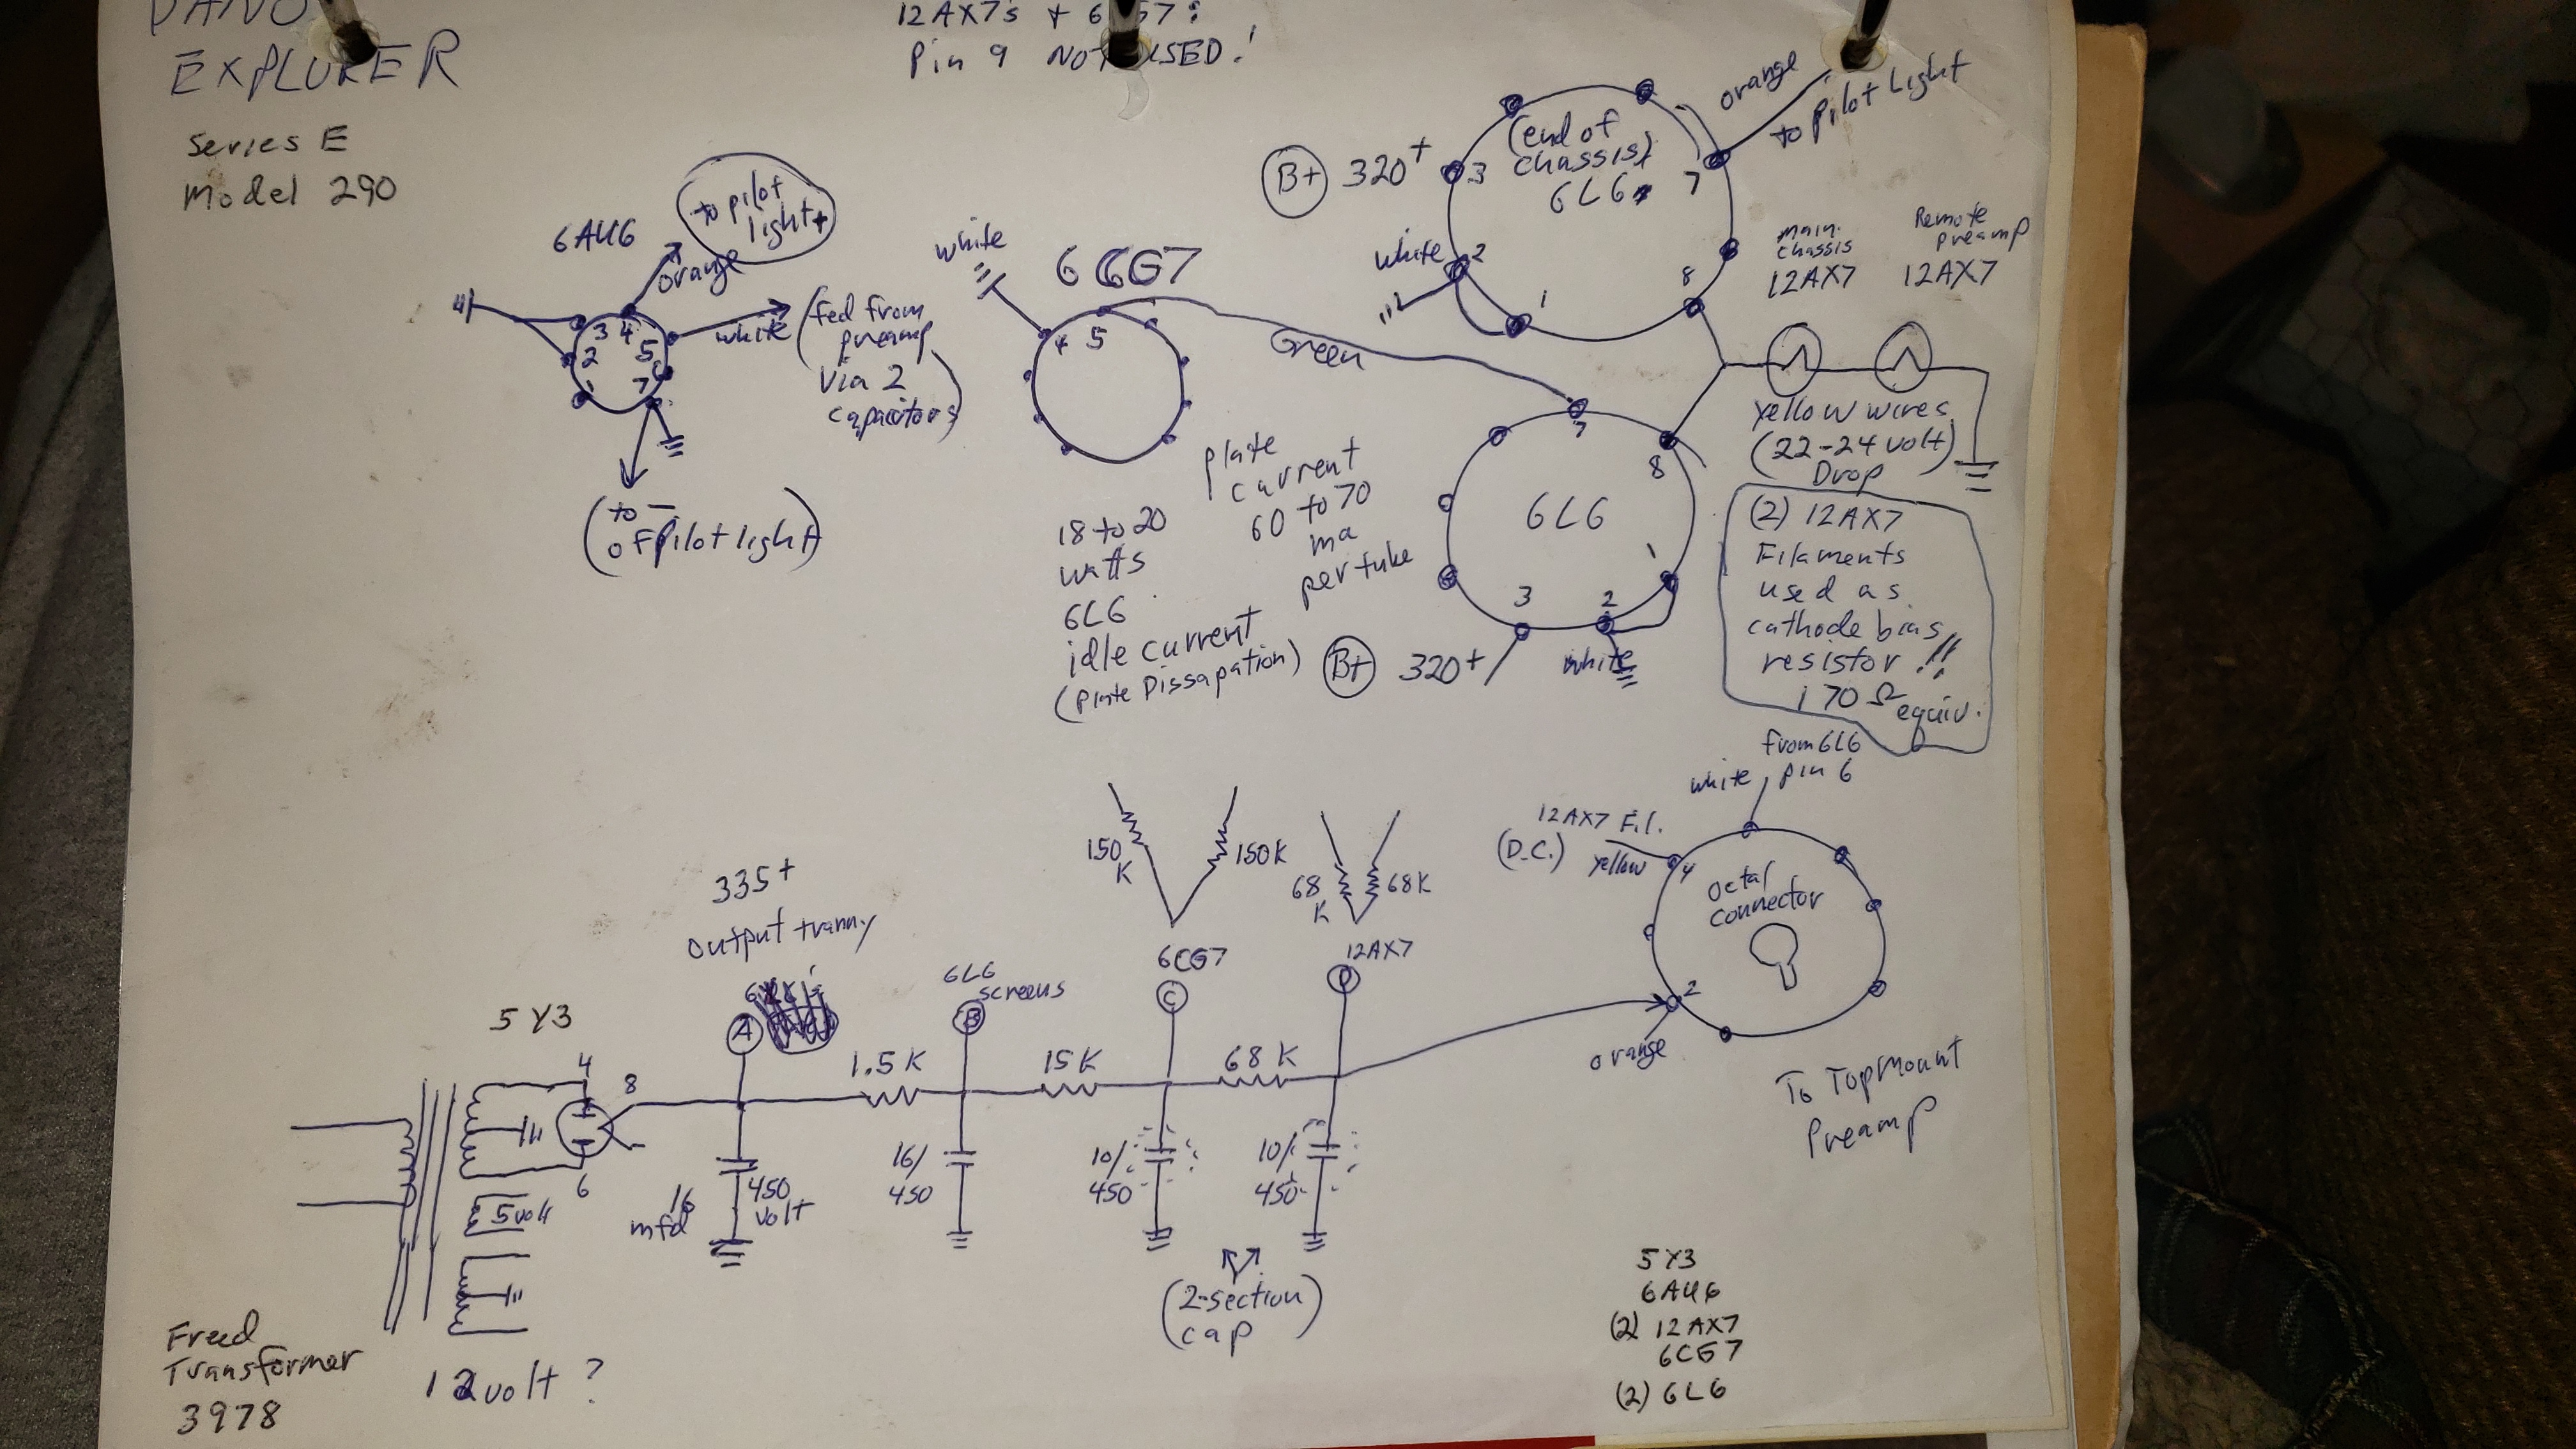 DANO
EXPLORER
Series E
Model 290
12AX7's + 6CG7:
Pin 9 NOT USED!
6AU6
to pilot
light +
orange
3 4
2 5
1 7 6
white
(fed from
preamp
via 2
capacitors)
(to -
of Pilot light)
white
6CG7
4 5
Green
B+ 320+
(end of
chassis)
6L6
3
7
white 2
1
8
orange
to Pilot Light
main
chassis
12AX7
Remote
preamp
12AX7
Yellow wires
(22-24 volt)
Drop
(2) 12AX7
Filaments
used as
cathode bias
resistor!!
170 Ω equiv.
plate
current
60 to 70
ma
per tube
18 to 20
watts
6L6
idle current
(Plate Dissapation)
7
8
6L6
1
3 2
B+ 320+
white
from 6L6
white pin 6
12AX7 Fil.
(D.C.) yellow
4
octal
connector
2
orange
To Topmount
Preamp
150
K
150K
68
K
68K
335+
output tranny
6L6
screens
6CG7
12AX7
A
B
C
D
5Y3
4
8
6
1.5K
15K
68K
16
mfd
450
volt
16/
450
10/
450
10/
450
(2-section)
cap
5volt
12volt?
Freed
Transformer
3978
5Y3
6AU6
(2) 12AX7
6CG7
(2) 6L6